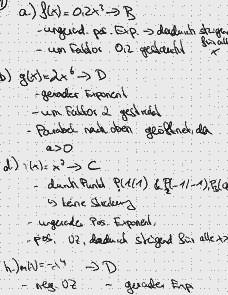 a.) f(x) = 0,2x³ → B
- ungerad. pos. Exp. → dadurch steigend für alle x
- um Faktor 0,2 gestaucht
b) g(x) = 2x⁶ → D
- gerader Exponent
- um Faktor 2 gestreckt
- Parabel nach oben geöffnet, da
a>0
d.) (x) = x³ → C
- durch Punkt P(1|1) & P(-1|-1), P₃(
↳ keine Streckung
- ungerader Pos. Exponent,
- pos. VZ, dadurch steigend für alle x
h.) m(x) = -x⁴ → D
- neg. VZ - gerader Exp